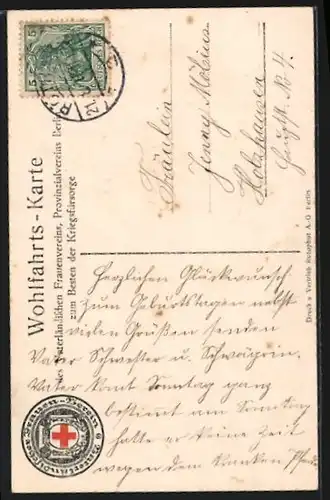 Wohlfahrts-Karte
des Vaterländischen Frauenvereins, Provinzialvereins Berlin
zum Besten der Kriegsfürsorge
Fräulein
Jenny Möbius
Holzhausen
Hauptstr. No 4
Herzlichen Glückwunsch
zum Geburtstage nebst
vielen Grüßen senden
Vater Schwester u. Schwägerin.
Vater komt Sonntag ganz
bestimt am Sonntag
hatte er keine Zeit
wegen dem kranken Pferde
Druck u. Vertrieb Rotophot A.-G. Berlin
5 5